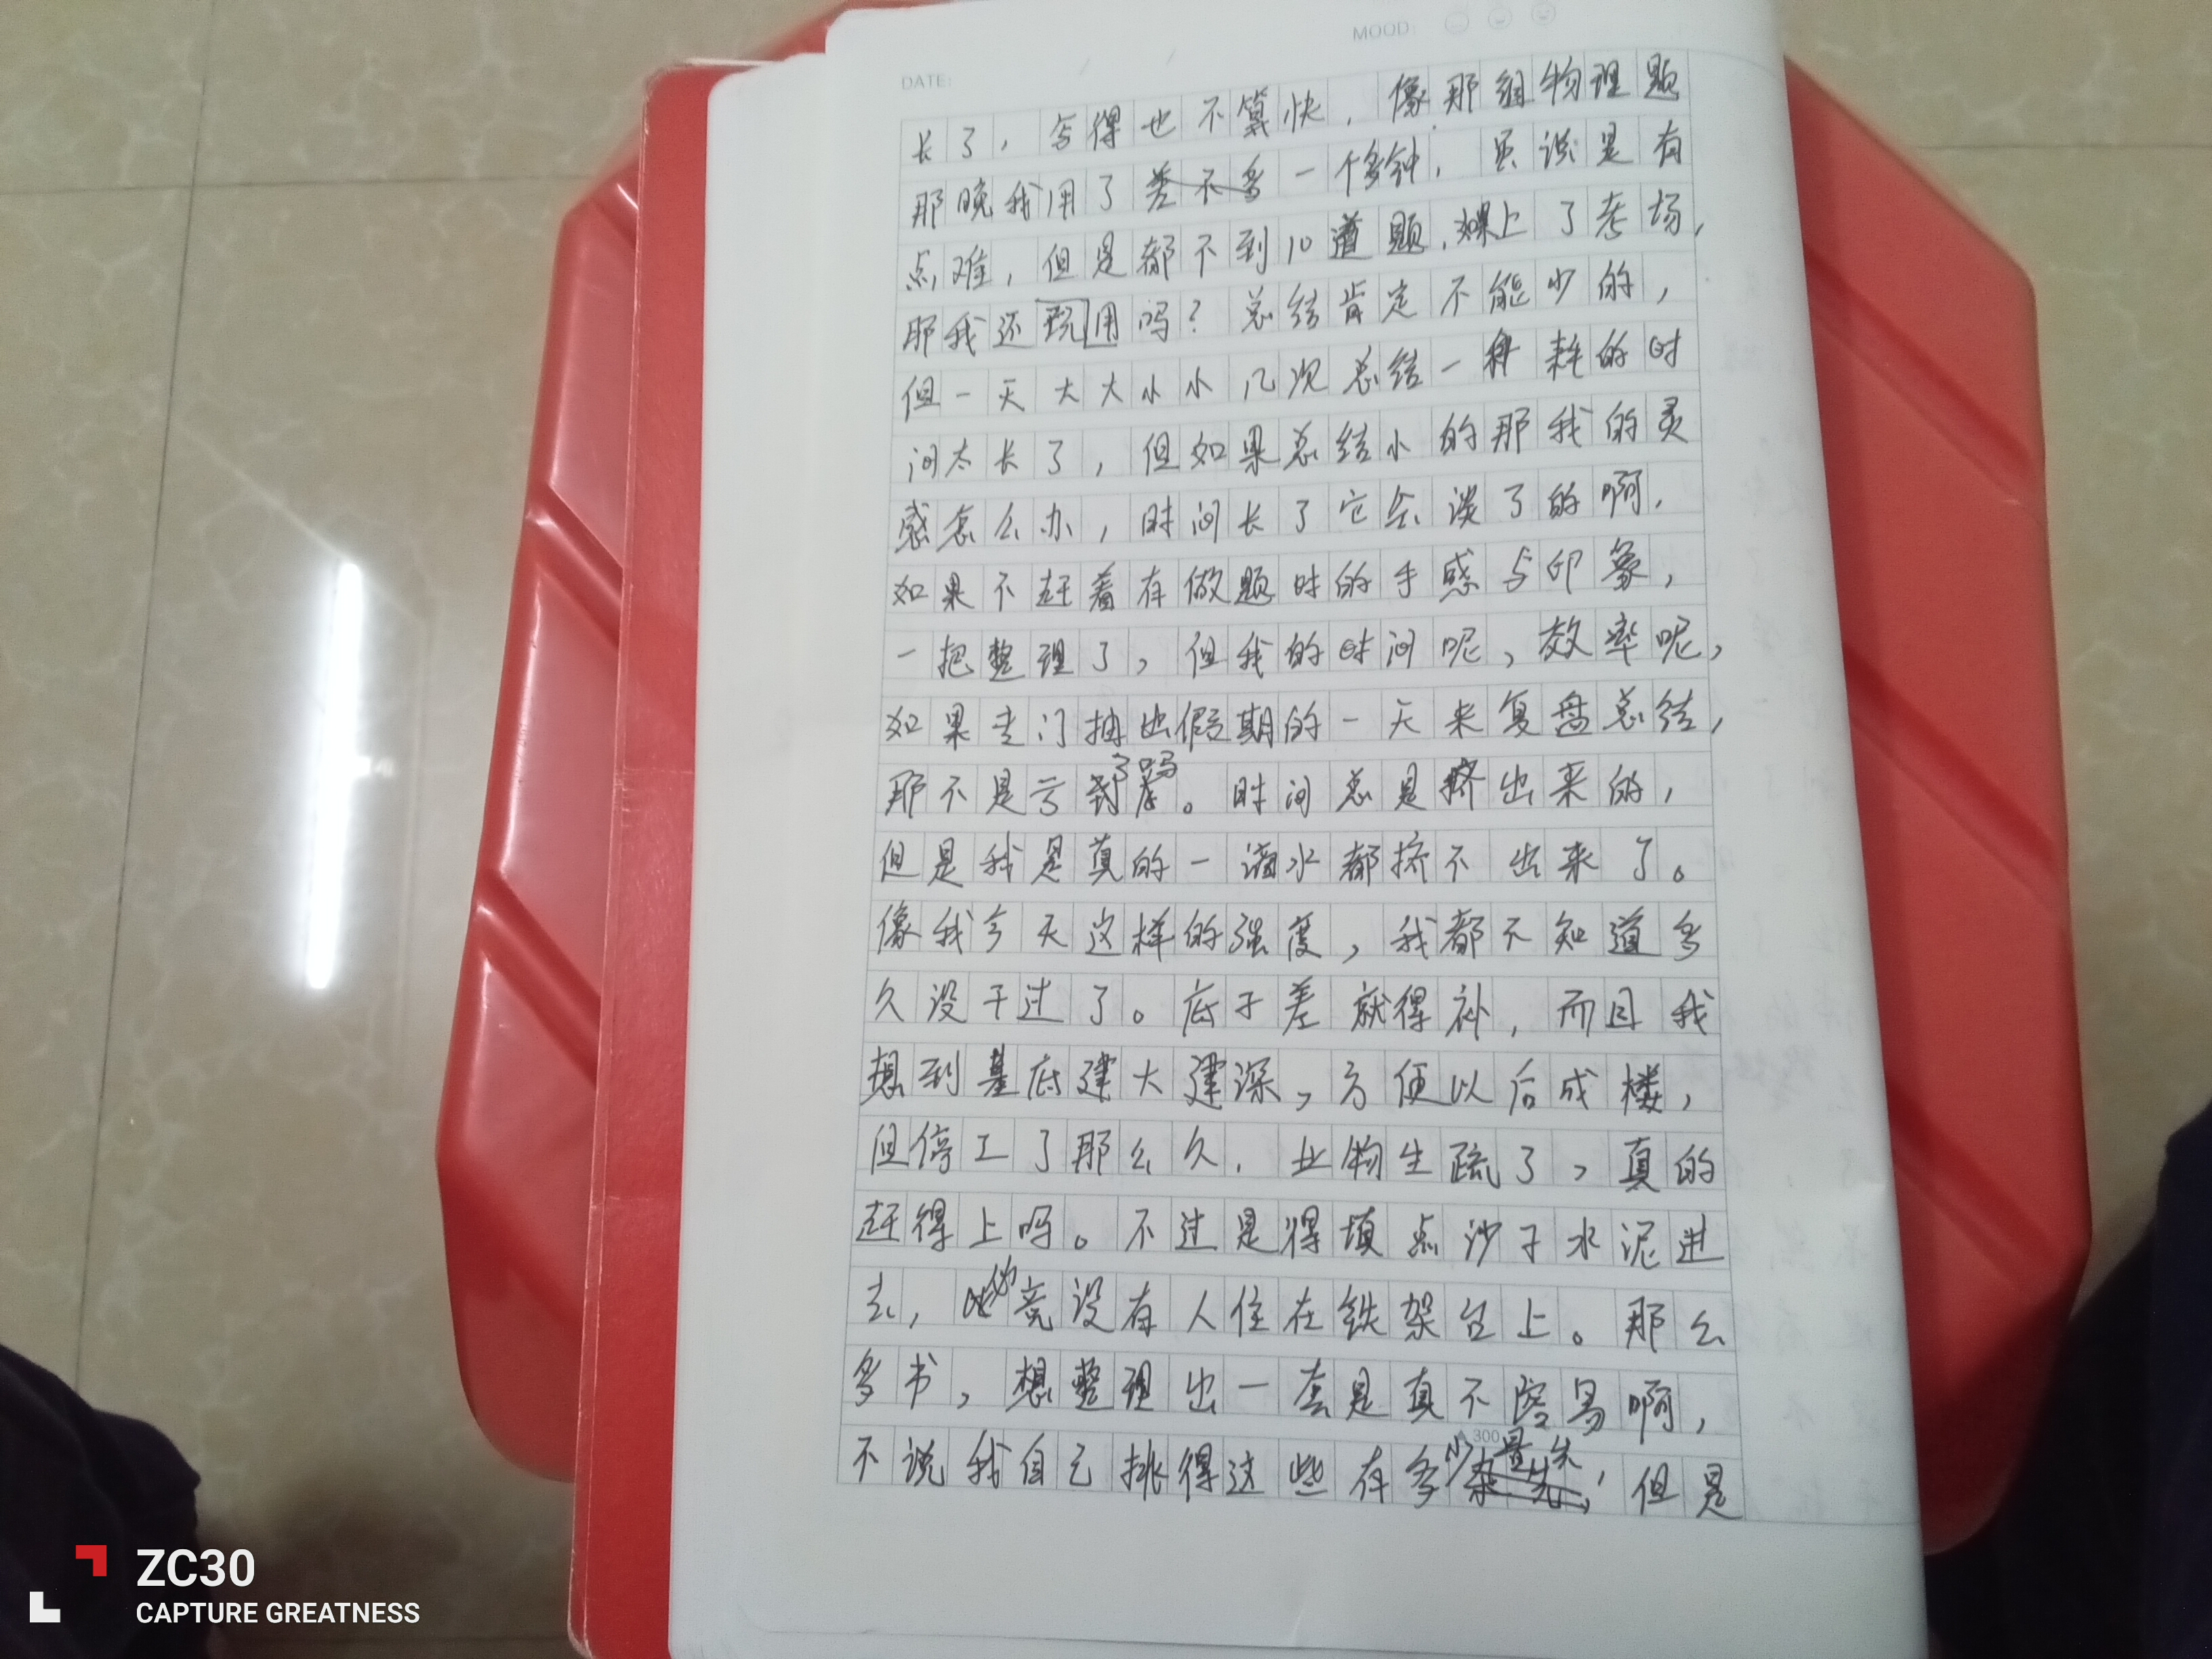 MOOD:
DATE:
长了，写得也不算快，像那组物理题
那晚我用了一个多钟，虽说是有
点难，但是都不到10道题，如果上了考场，
那我还玩用吗？总结肯定不能少的，
但一天大大小小几次总结一种耗的时
间太长了，但如果总结小的那我的灵
感怎么办，时间长了它会淡了的啊，
如果不赶着有做题时的手感与印象，
一把整理了，但我的时间呢，效率呢，
如果专门抽出假期的一天来复盘总结，
那不是亏了吗。时间总是挤出来的，
但是我是真的一滴水都挤不出来了。
像我今天这样的强度，我都不知道多
久没干过了。底子差就得补，而且我
想到基底建大建深，方便以后成楼，
但停工了那么久，业物生疏了，真的
赶得上吗。不过是得填点沙子水泥进
去，竟没有人住在铁架台上。那么
多书，想整理出一套是真不容易啊，
300
不说我自己挑得这些有多少，但是
ZC30
CAPTURE GREATNESS